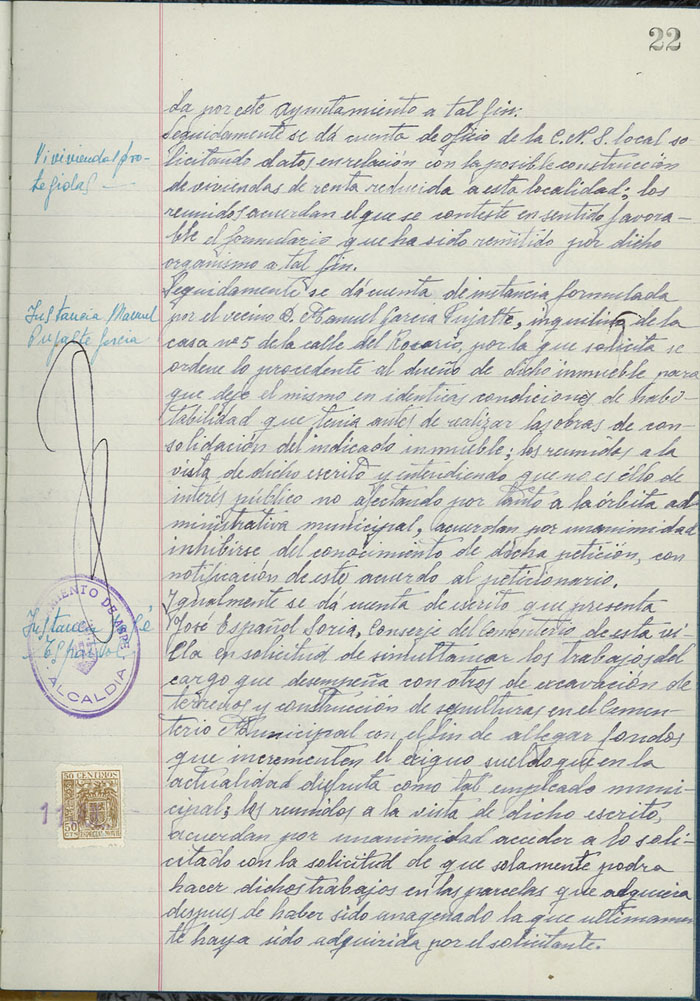 22
da por este Ayuntamiento a tal fin.
Viviendas pro-
tegidas —
Seguidamente se dá cuenta de oficio de la C.N.S. local so
licitando datos en relación con la posible construcción
de viviendas de renta reducida a esta localidad; los
reunidos acuerdan el que se conteste en sentido favora-
ble el formulario que ha sido remitido por dicho
organismo a tal fin.
Instancia Manuel
Pujalte Garcia
Seguidamente se dá cuenta de instancia formulada
por el vecino D. Manuel Garcia Pujalte, inquilino de la
casa nº 5 de la calle del Rosario, por la que solicita se
ordene lo procedente al dueño de dicho inmueble para
que deje el mismo en identicas condiciones de habi-
tabilidad que tenia antes de realizar las obras de con-
solidación del indicado inmueble; los reunidos a la
vista de dicho escrito y entendiendo que no es éllo de
interés público no afectando por tanto a la órbita ad
ministrativa municipal, acuerdan por unanimidad
inhibirse del conocimiento de dicha petición, con
notificación de este acuerdo al peticionario.
Instancia José
Español
MIENTO DE ASPE
ALCALDIA
Igualmente se dá cuenta de escrito que presenta
José Español Soria, Conserje del Cementerio de esta vi-
lla en solicitud de simultanear los trabajos del
cargo que desempeña con otros de excavación de
terrenos y construcción de sepulturas en el Cemen-
terio Municipal con el fin de allegar fondos
que incrementen el exiguo sueldo que en la
actualidad disfruta como tal empleado muni-
cipal; los reunidos a la vista de dicho escrito,
acuerdan por unanimidad acceder a lo soli-
citado con la solicitud de que solamente podra
hacer dichos trabajos en las parcelas que adquiera
despues de haber sido enagenado la que ultimamen
te haya sido adquirida por el solicitante.
50 CENTIMOS
50
CTS
ESPECIAL MOVIL